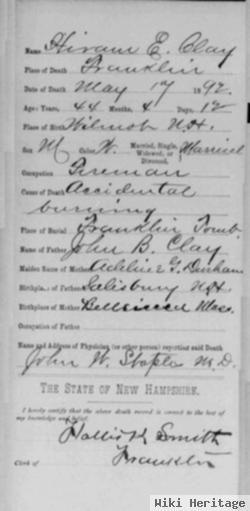 Name Hiram E. Clay
Place of Death Franklin
Date of Death May 17 1892
Age: Years, 44 Months, 4 Days, 12
Place of Birth Wilmot N.H.
Sex M Color W. Married, Single, Widowed, or Divorced, Married
Occupation Fireman
Cause of Death Accidental
burning
Place of Burial Franklin Tomb
Name of Father John B. Clay
Maiden Name of Mother Adeline G.
Birthplace of Father Salisbury N.H.
Birthplace of Mother Mass.
Occupation of Father
Name and Address of Physician (or other person) reporting said Death
John W. Staple M.D.
THE STATE OF NEW HAMPSHIRE.
I hereby certify that the above death record is correct to the best of
my knowledge and belief.
Hollis K Smith
Clerk of Franklin
Wiki Heritage